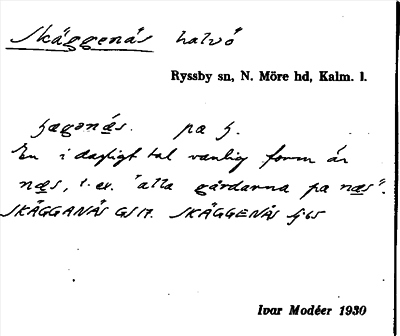 Skäggenäs halvö
Ryssby sn, N. Möre hd, Kalm. l.
på
En i dagligt tal vanlig form är
næs, t. ex. "alla gårdarna på næs".
SKÄGGANÄS GS 17. SKÄGGENÄS
Ivar Modéer 1930